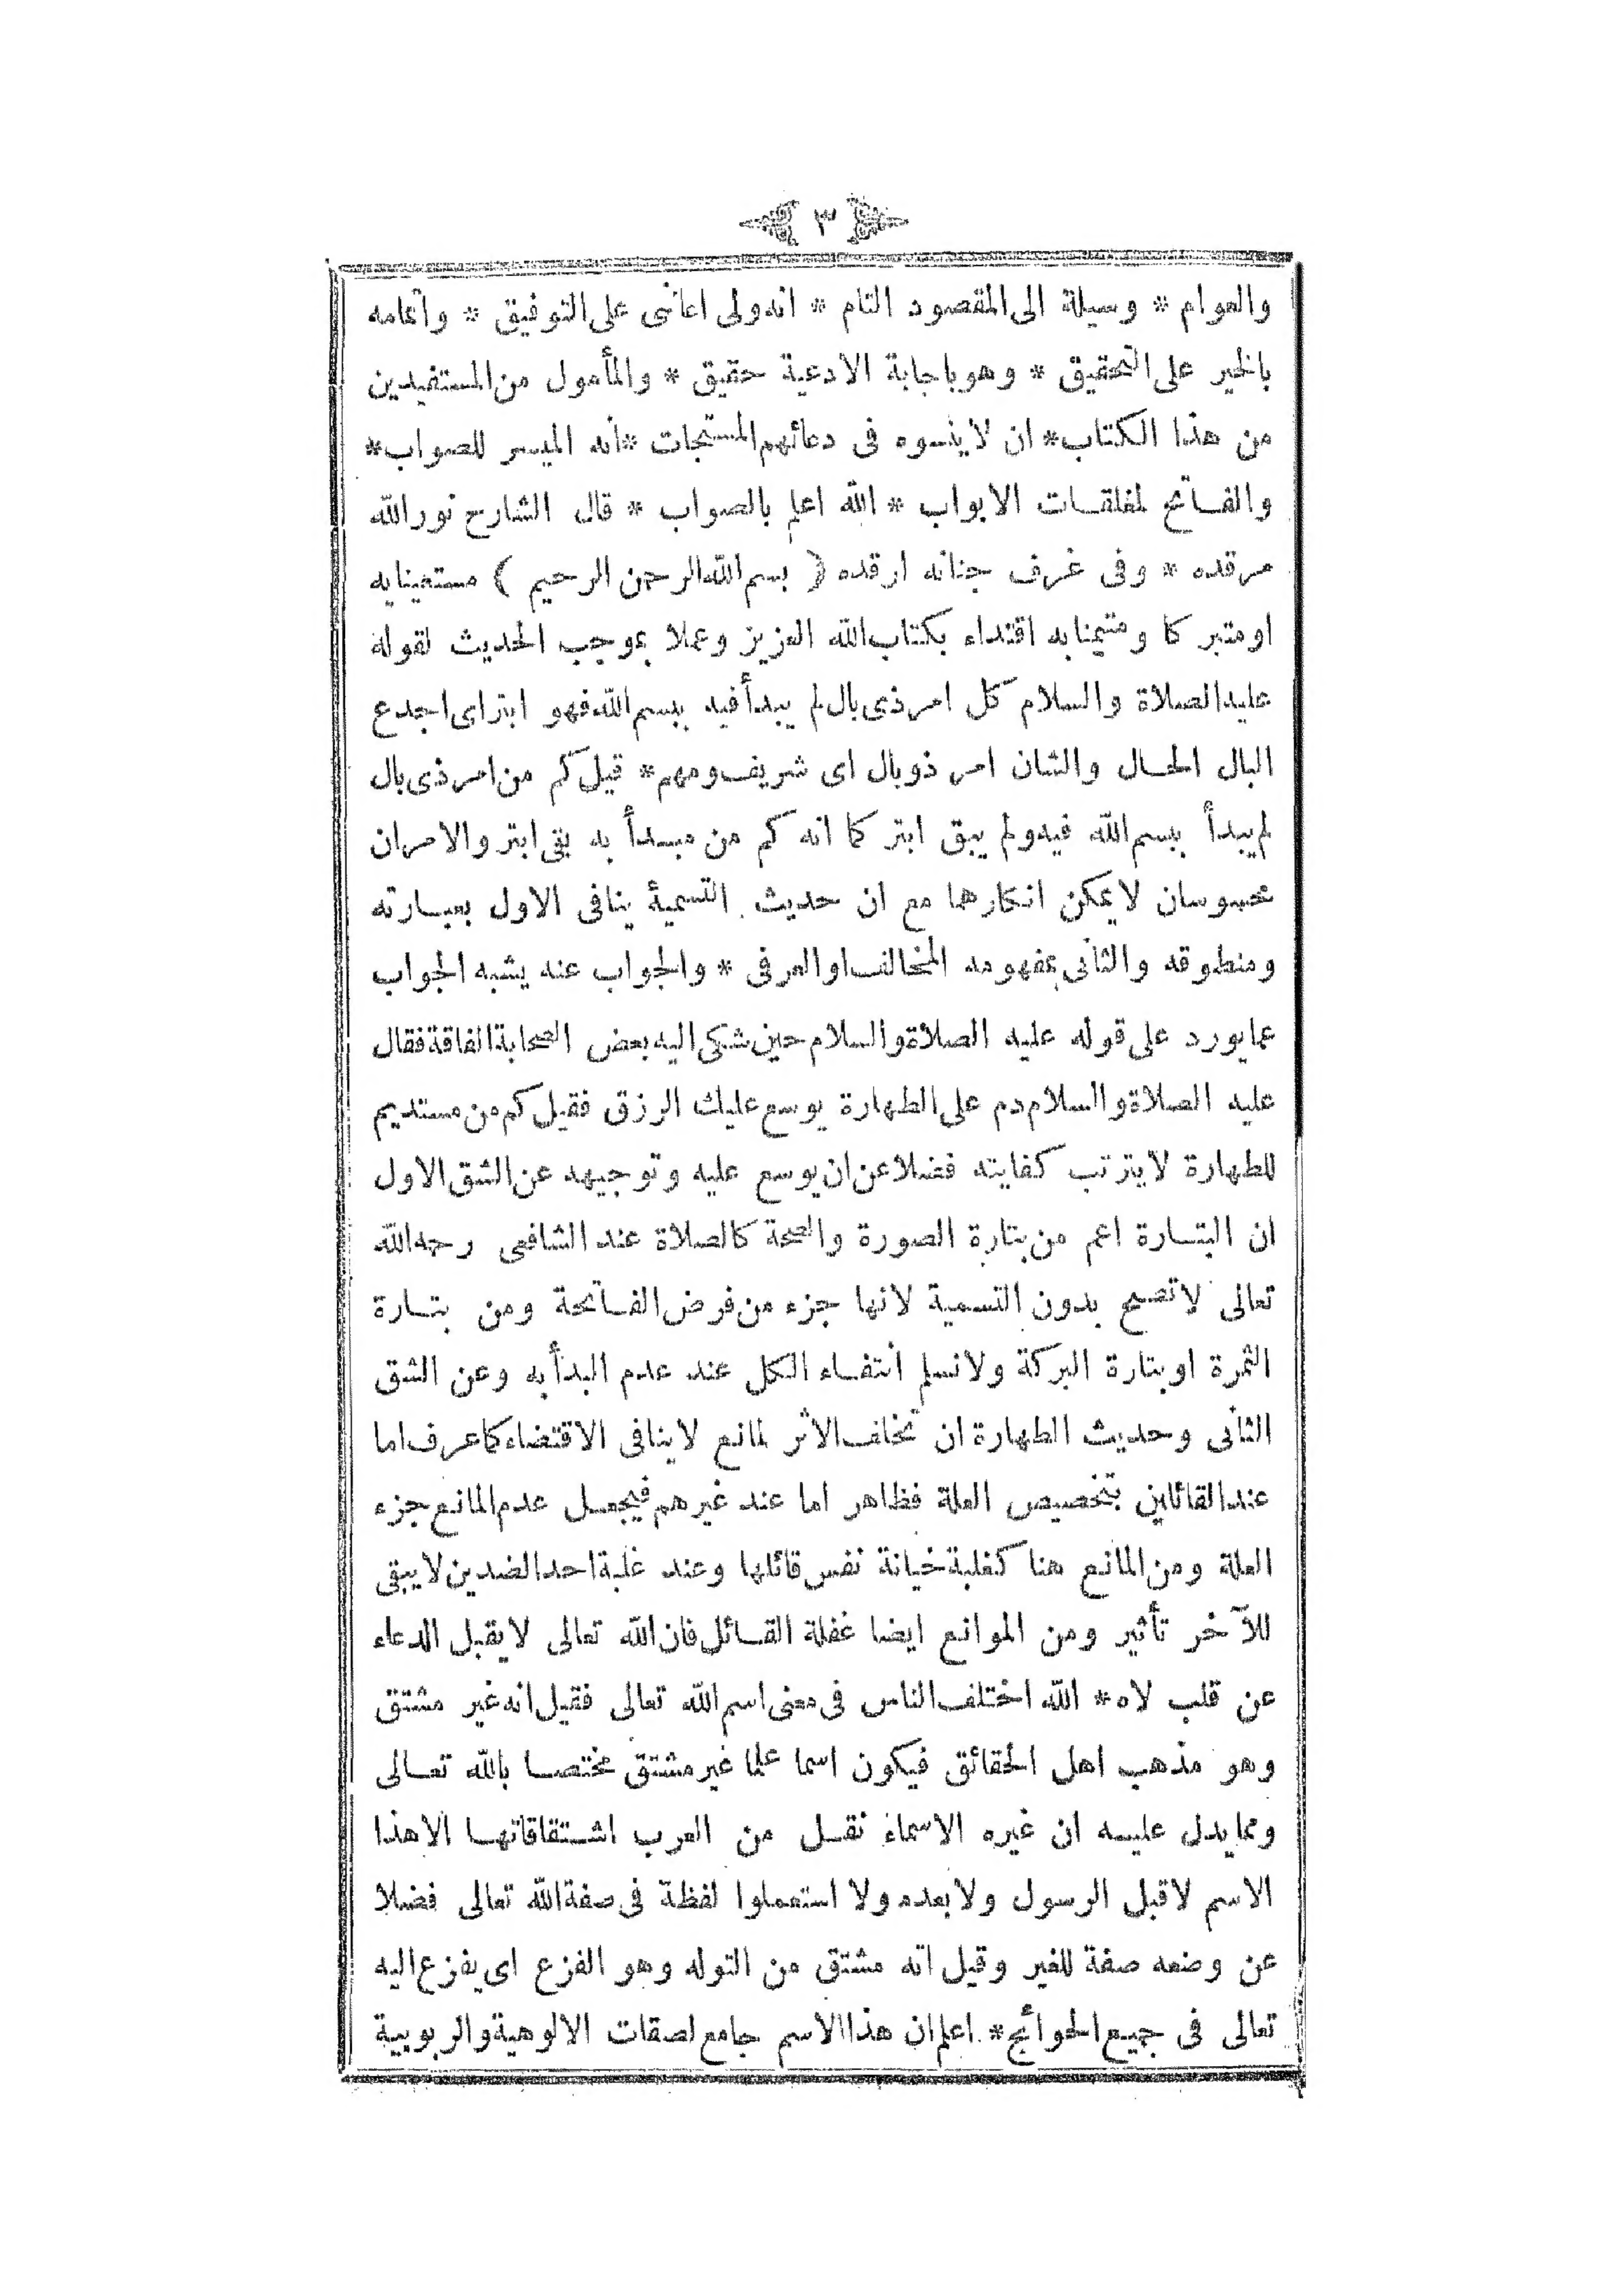 ٣
والعوام * وسيلة الى المقصود التام * انه ولى اعاننى على التوفيق * واتمامه
بالخير على التحقيق * وهو باجابة الادعية حقيق * والمأمول من المستفيدين
من هذا الكتاب * ان لا ينسوه فى دعائهم المستجات * انه الميسر للصواب *
والفاتح لمغلقات الابواب * الله اعلم بالصواب * قال الشارح نور الله
مرقده * وفى غرف جنانه ارقده ( بسم الله الرحمن الرحيم ) مستعينا به
او متبركا ومتيمنا به اقتداء بكتاب الله العزيز وعملا بموجب الحديث لقوله
عليه الصلاة والسلام كل امر ذى بال لم يبدأ فيه ببسم الله فهو ابتر اى اجدع
البال الحال والشان امر ذو بال اى شريف ومهم * قيل كم من امر ذى بال
لم يبدأ ببسم الله فيه ولم يبق ابتر كما انه كم من مبدأ به بقى ابتر والامران
محسوسان لا يمكن انكارهما مع ان حديث التسمية ينافى الاول بعبارته
ومنطوقه والثانى بمفهومه المخالف او العرفى * والجواب عنه يشبه الجواب
عما يورد على قوله عليه الصلاة والسلام حين شكى اليه بعض الصحابة الفاقة فقال
عليه الصلاة والسلام دم على الطهارة يوسع عليك الرزق فقيل كم من مستديم
للطهارة لا يترتب كفايته فضلا عن ان يوسع عليه وتوجيهه عن الشق الاول
ان البتارة اعم من بتارة الصورة والصحة كالصلاة عند الشافعى رحمه الله
تعالى لا تصح بدون التسمية لانها جزء من فرض الفاتحة ومن بتارة
الثمرة او بتارة البركة ولا نسلم انتفاء الكل عند عدم البدأ به وعن الشق
الثانى وحديث الطهارة ان تخلف الاثر لمانع لا ينافى الاقتضاء كما عرف اما
عند القائلين بتخصيص العلة فظاهر اما عند غيرهم فيجعل عدم المانع جزء
العلة ومن المانع هنا كغلبة خيانة نفس قائلها وعند غلبة احد الضدين لا يبقى
للآخر تأثير ومن الموانع ايضا غفلة القائل فان الله تعالى لا يقبل الدعاء
عن قلب لاه * الله اختلف الناس فى معنى اسم الله تعالى فقيل انه غير مشتق
وهو مذهب اهل الحقائق فيكون اسما علما غير مشتق مختصا بالله تعالى
ومما يدل عليه ان غيره الاسماء نقل من العرب اشتقاقاتها الا هذا
الاسم لا قبل الرسول ولا بعده ولا استعملوا لفظة فى صفة الله تعالى فضلا
عن وضعه صفة للغير وقيل انه مشتق من التوله وهو الفزع اى يفزع اليه
تعالى فى جميع الحوائج * اعلم ان هذا الاسم جامع لصفات الالوهية والربوبية